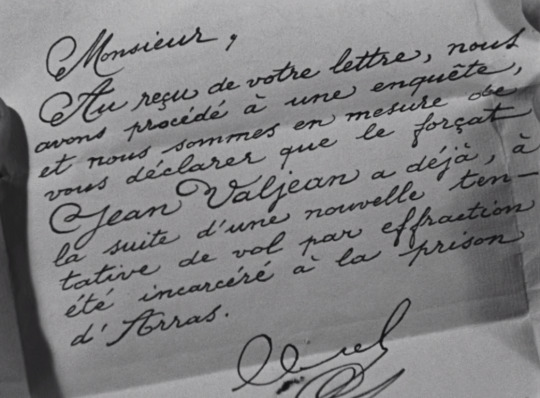 Monsieur,
Au reçu de votre lettre, nous
avons procédé à une enquête,
et nous sommes en mesure de
vous déclarer que le forçat
Jean Valjean a déjà, à
la suite d'une nouvelle ten-
tative de vol par effraction
été incarcéré à la prison
d'Arras.